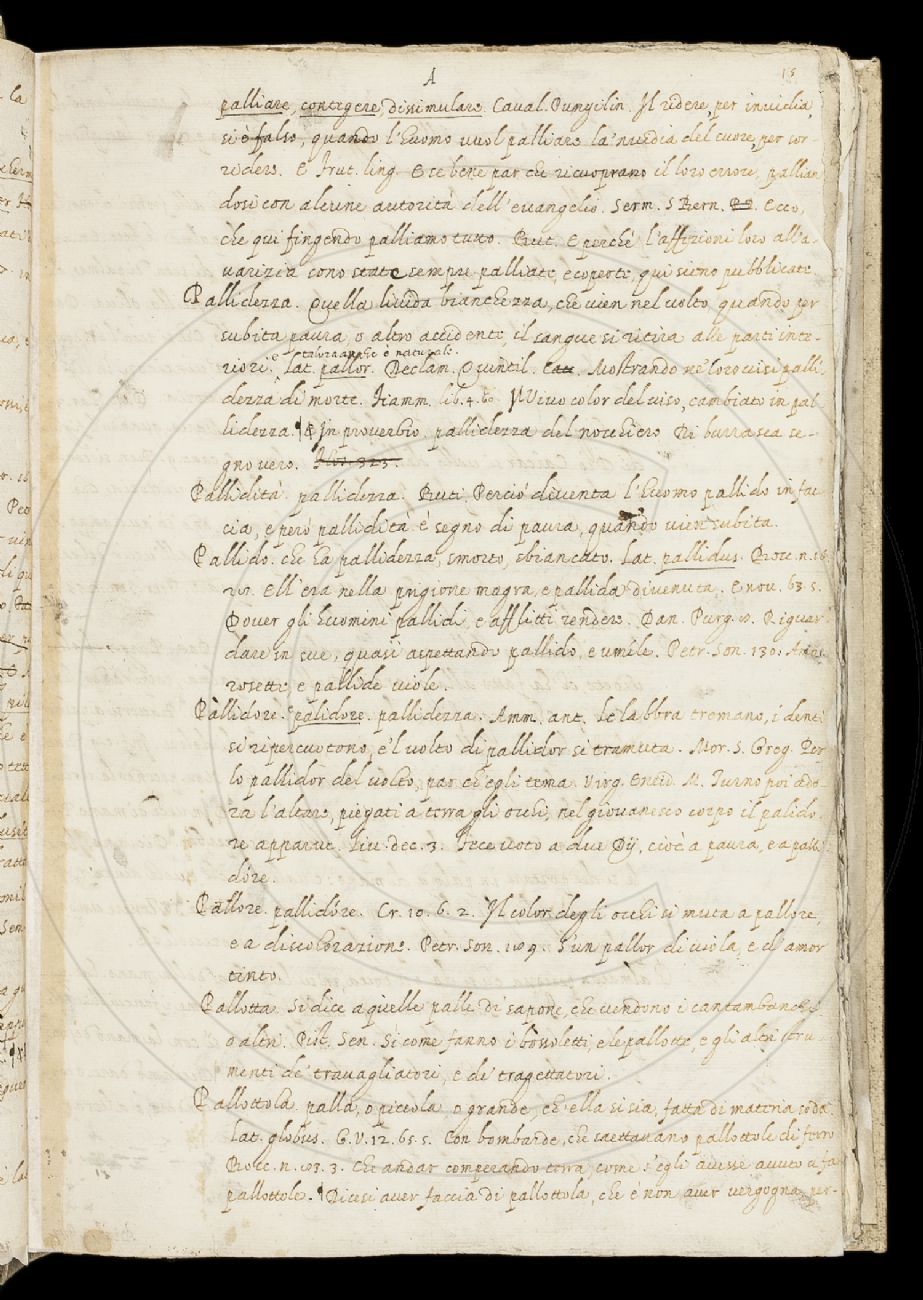 A
13
palliare, contegere, dissimulare. Caval. Pungilin. Il ridere, per inuidia,
si è falso, quando l'huomo vuol palliare la inuidia del cuore, per sor-
ridere. E frut. ling. E se bene par che ricuoprano il loro errore, pallian
dosi con alcune autorità dell'euangelio. Serm. S Bern. Ecco,
che qui fingendo palliamo tutto. But. E perchè l'affezioni loro all'a-
uarizia sono state sempre palliate, e coperte, qui sieno pubblicate
Pallidezza. Quella liuida bianchezza, che vien nel volto, quando per
subita paura, o altro accidente, il sangue si ritira alle parti inte-
e talura anche è naturale.
riori. Lat. pallor. Declam. Quintil. Mostrando ne' loro uisi palli-
dezza di morte. Fiamm. lib. 4. Il Viuo color del uiso, cambiato in pal
lidezza. ¶ In prouerbio. pallidezza del nocchiero Di burrasca se-
gno vero. Flos. 323.
Pallidità. pallidezza. Buti. Perciò diuenta l'huomo pallido in fac
cia, e però pallidità è segno di paura, quando vien subita.
Pallido. che ha pallidezza, smorto, sbiancato. Lat. pallidus. Bocc. n. 16
Ell'era nella prigione magra, e pallida diuenuta. E nou. 63. 5.
Douer gli huomini pallidi, e afflitti rendere. Dan. Purg. 8. Riguar-
dare in sue, quasi aspettando pallido, e umile. Petr. Son. 130.
rosette, e pallide viole.
Pallidore. palidore. pallidezza. Amm. ant. Le labbra tremano, i denti
si ripercuotono, e'l uolto di pallidor si tramuta. Mor. S. Greg. Per
lo pallidor del uolto, par ch'egli tema. Virg. Eneid. M. Turno poi ado-
ra l'altare, piegati a terra gli occhi, nel giouanesco corpo il palido-
re apparue. Liu. dec. 3. Fece uoto a due Dij, cioè a paura, e a palli
dóre.
Pallore. pallidóre. Cr. 10. 6. 2. Il color degli occhi si muta a pallore,
e a discolorazione. Petr. Son. 189. S'un pallor di uiola, e d'amor
tinto.
Pallotta. Si dice a quelle palle di sapone, che uendono i cantambanchi
o altri. Pist. Sen. Si come fanno i bossoletti, e le pallotte, e gli altri stru-
menti de' trauagliatori, e de' tragettatori.
Pallottola. palla, o piccola o grande, ch'ella si sia, fatta di materia soda.
Lat. globus. G. V. 12. 65. 5. Con bombarde, che saettauano pallottole di ferro
Bocc. n. 83. 3. Che andar comperando terra, come s'egli auesse auuto a far
pallottole. ¶ Dicesi auer faccia di pallottola, che è non auer vergogna, per-